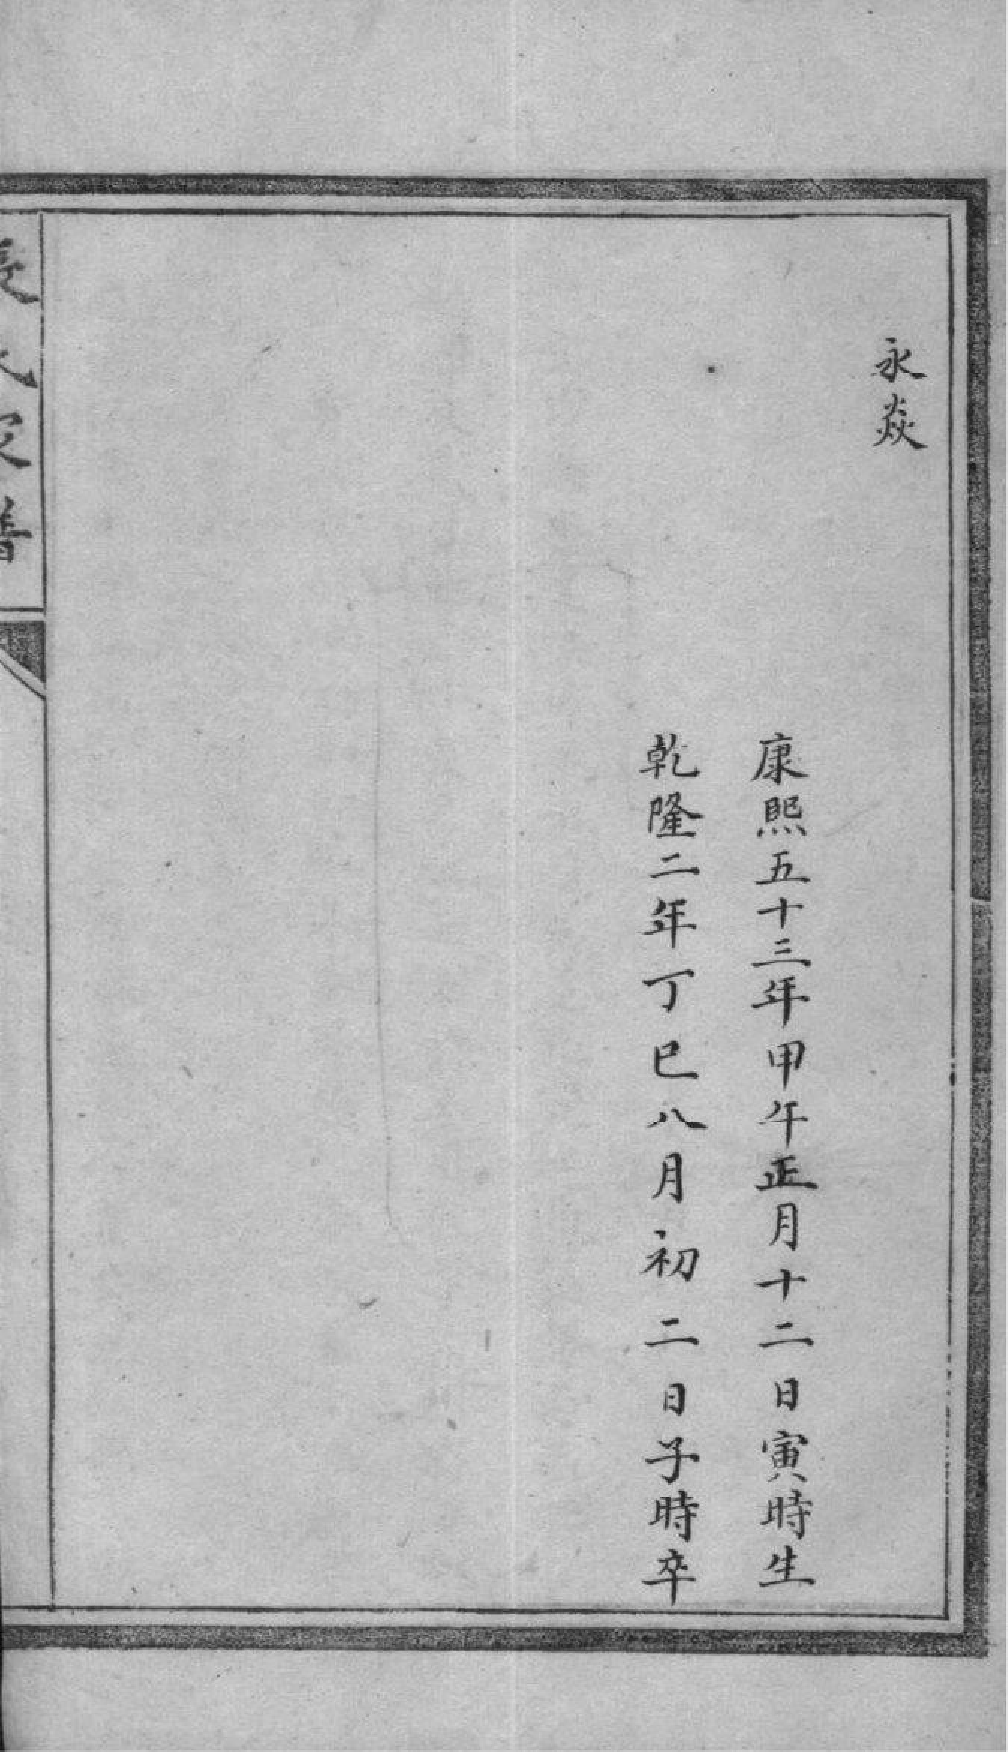 永焱
康熙五十三年甲午正月十二日寅時生
乾隆二年丁巳八月初二日子時卒
氏家譜